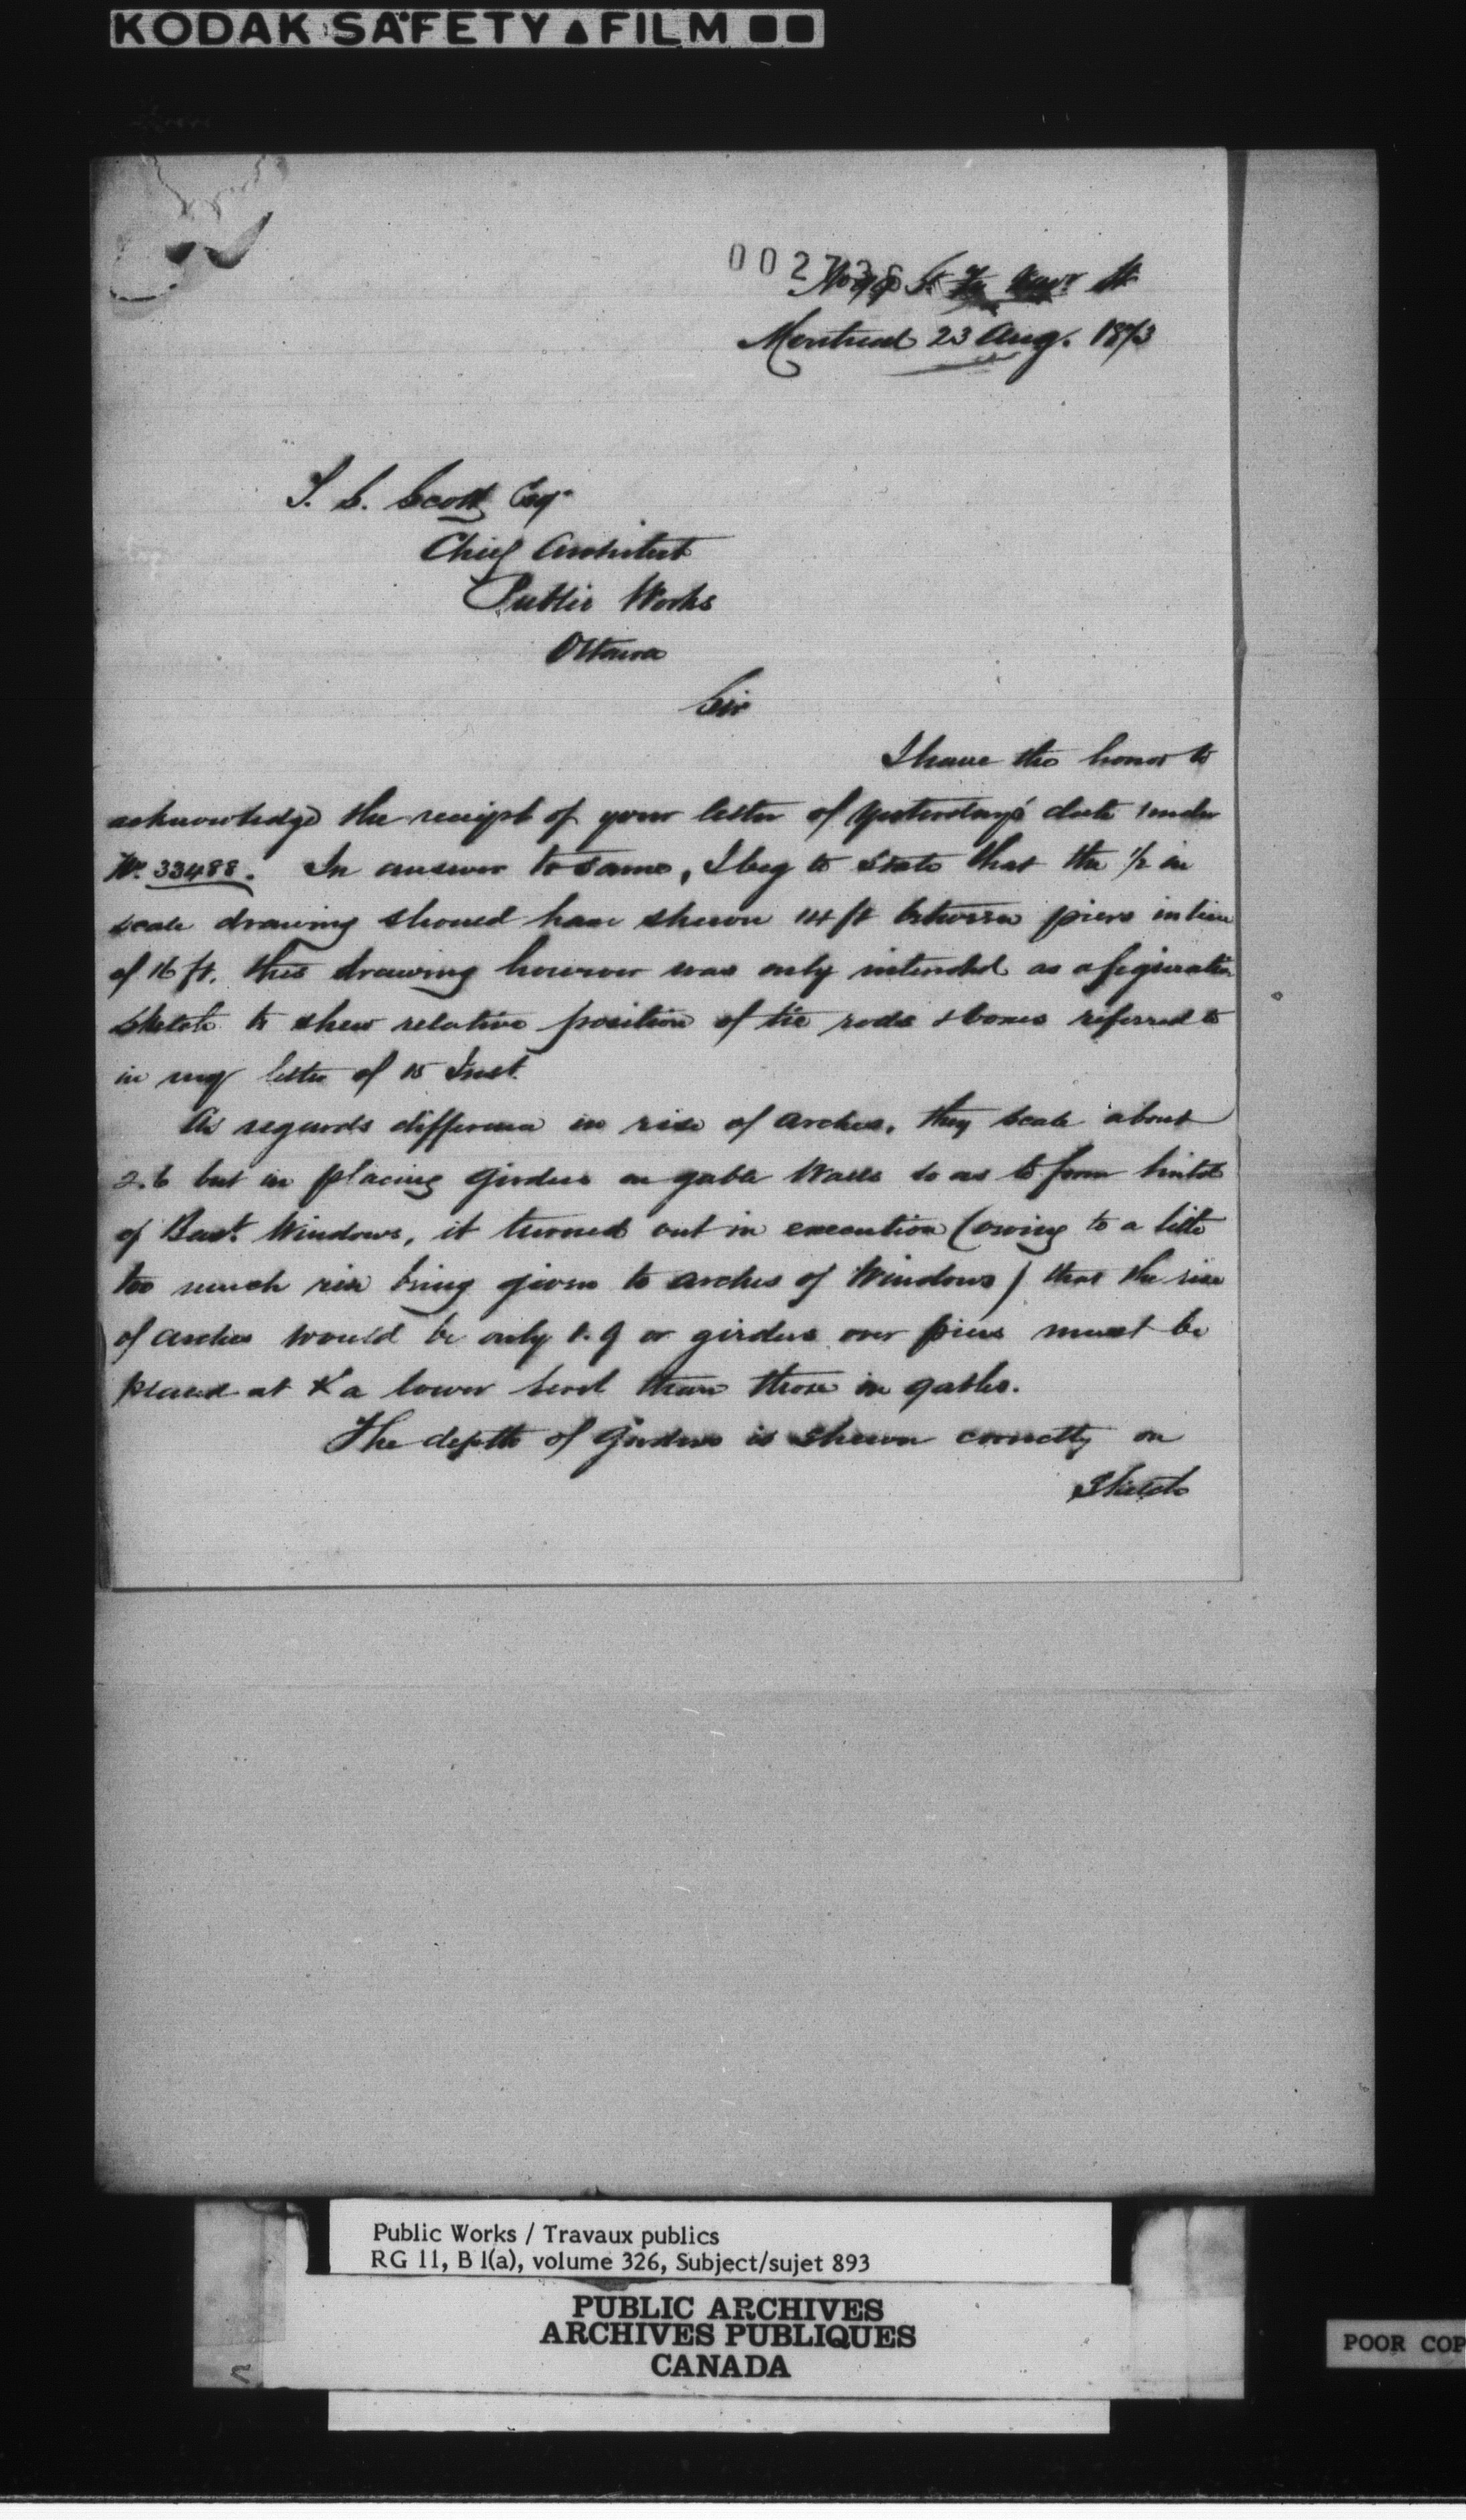 KODAK SAFETY ▲ FILM ■■
002
St Fr Xavr St
Montreal 23 Aug. 1873
T. S. Scott Esqr
Chief Architect
Public Works
Ottawa
Sir
I have the honor to
acknowledge the receipt of your letter of yesterday's date under
No. 33488. In answer to same, I beg to state that the 1/2 in
scale drawing should have shewn 14 ft between piers in lieu
of 16 ft. this drawing however was only intended as a
sketch to shew relative position of tie rods & boxes referred to
in my letter of 15 Inst.
As regards difference in rise of arches, they scale about
2.6 but in placing girders on gable walls so as to form lintel
of Bast. Windows, it turned out in execution (owing to a little
too much rise being given to arches of Windows) that the rise
of arches would be only 1.9 or girders over piers must be
placed at a lower level than those in gables.
The depth of girders is shewn correctly on
Sketch
Public Works / Travaux publics
RG 11, B 1(a), volume 326, Subject/sujet 893
PUBLIC ARCHIVES
ARCHIVES PUBLIQUES
CANADA
POOR COP